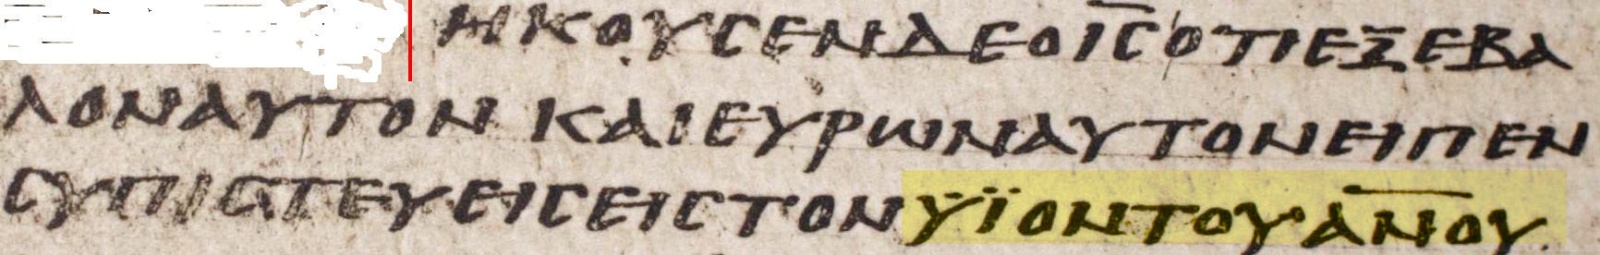 ΗΚΟΥϹΕΝΔΕΟΙ̅Ϲ̅ΟΤΙΕΞΕΒΑ
ΛΟΝΑΥΤΟΝ ΚΑΙΕΥΡΩΝΑΥΤΟΝΕΙΠΕΝ
ϹΥΠΙϹΤΕΥΕΙϹΕΙϹΤΟΝΫΪΟΝΤΟΥΑ̅Ν̅Ο̅Υ̅